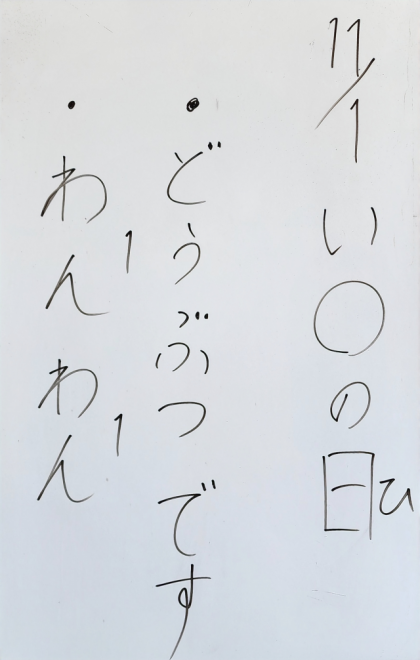 11/1 い〇の日ひ
・どうぶつです
・わんわん
1 1